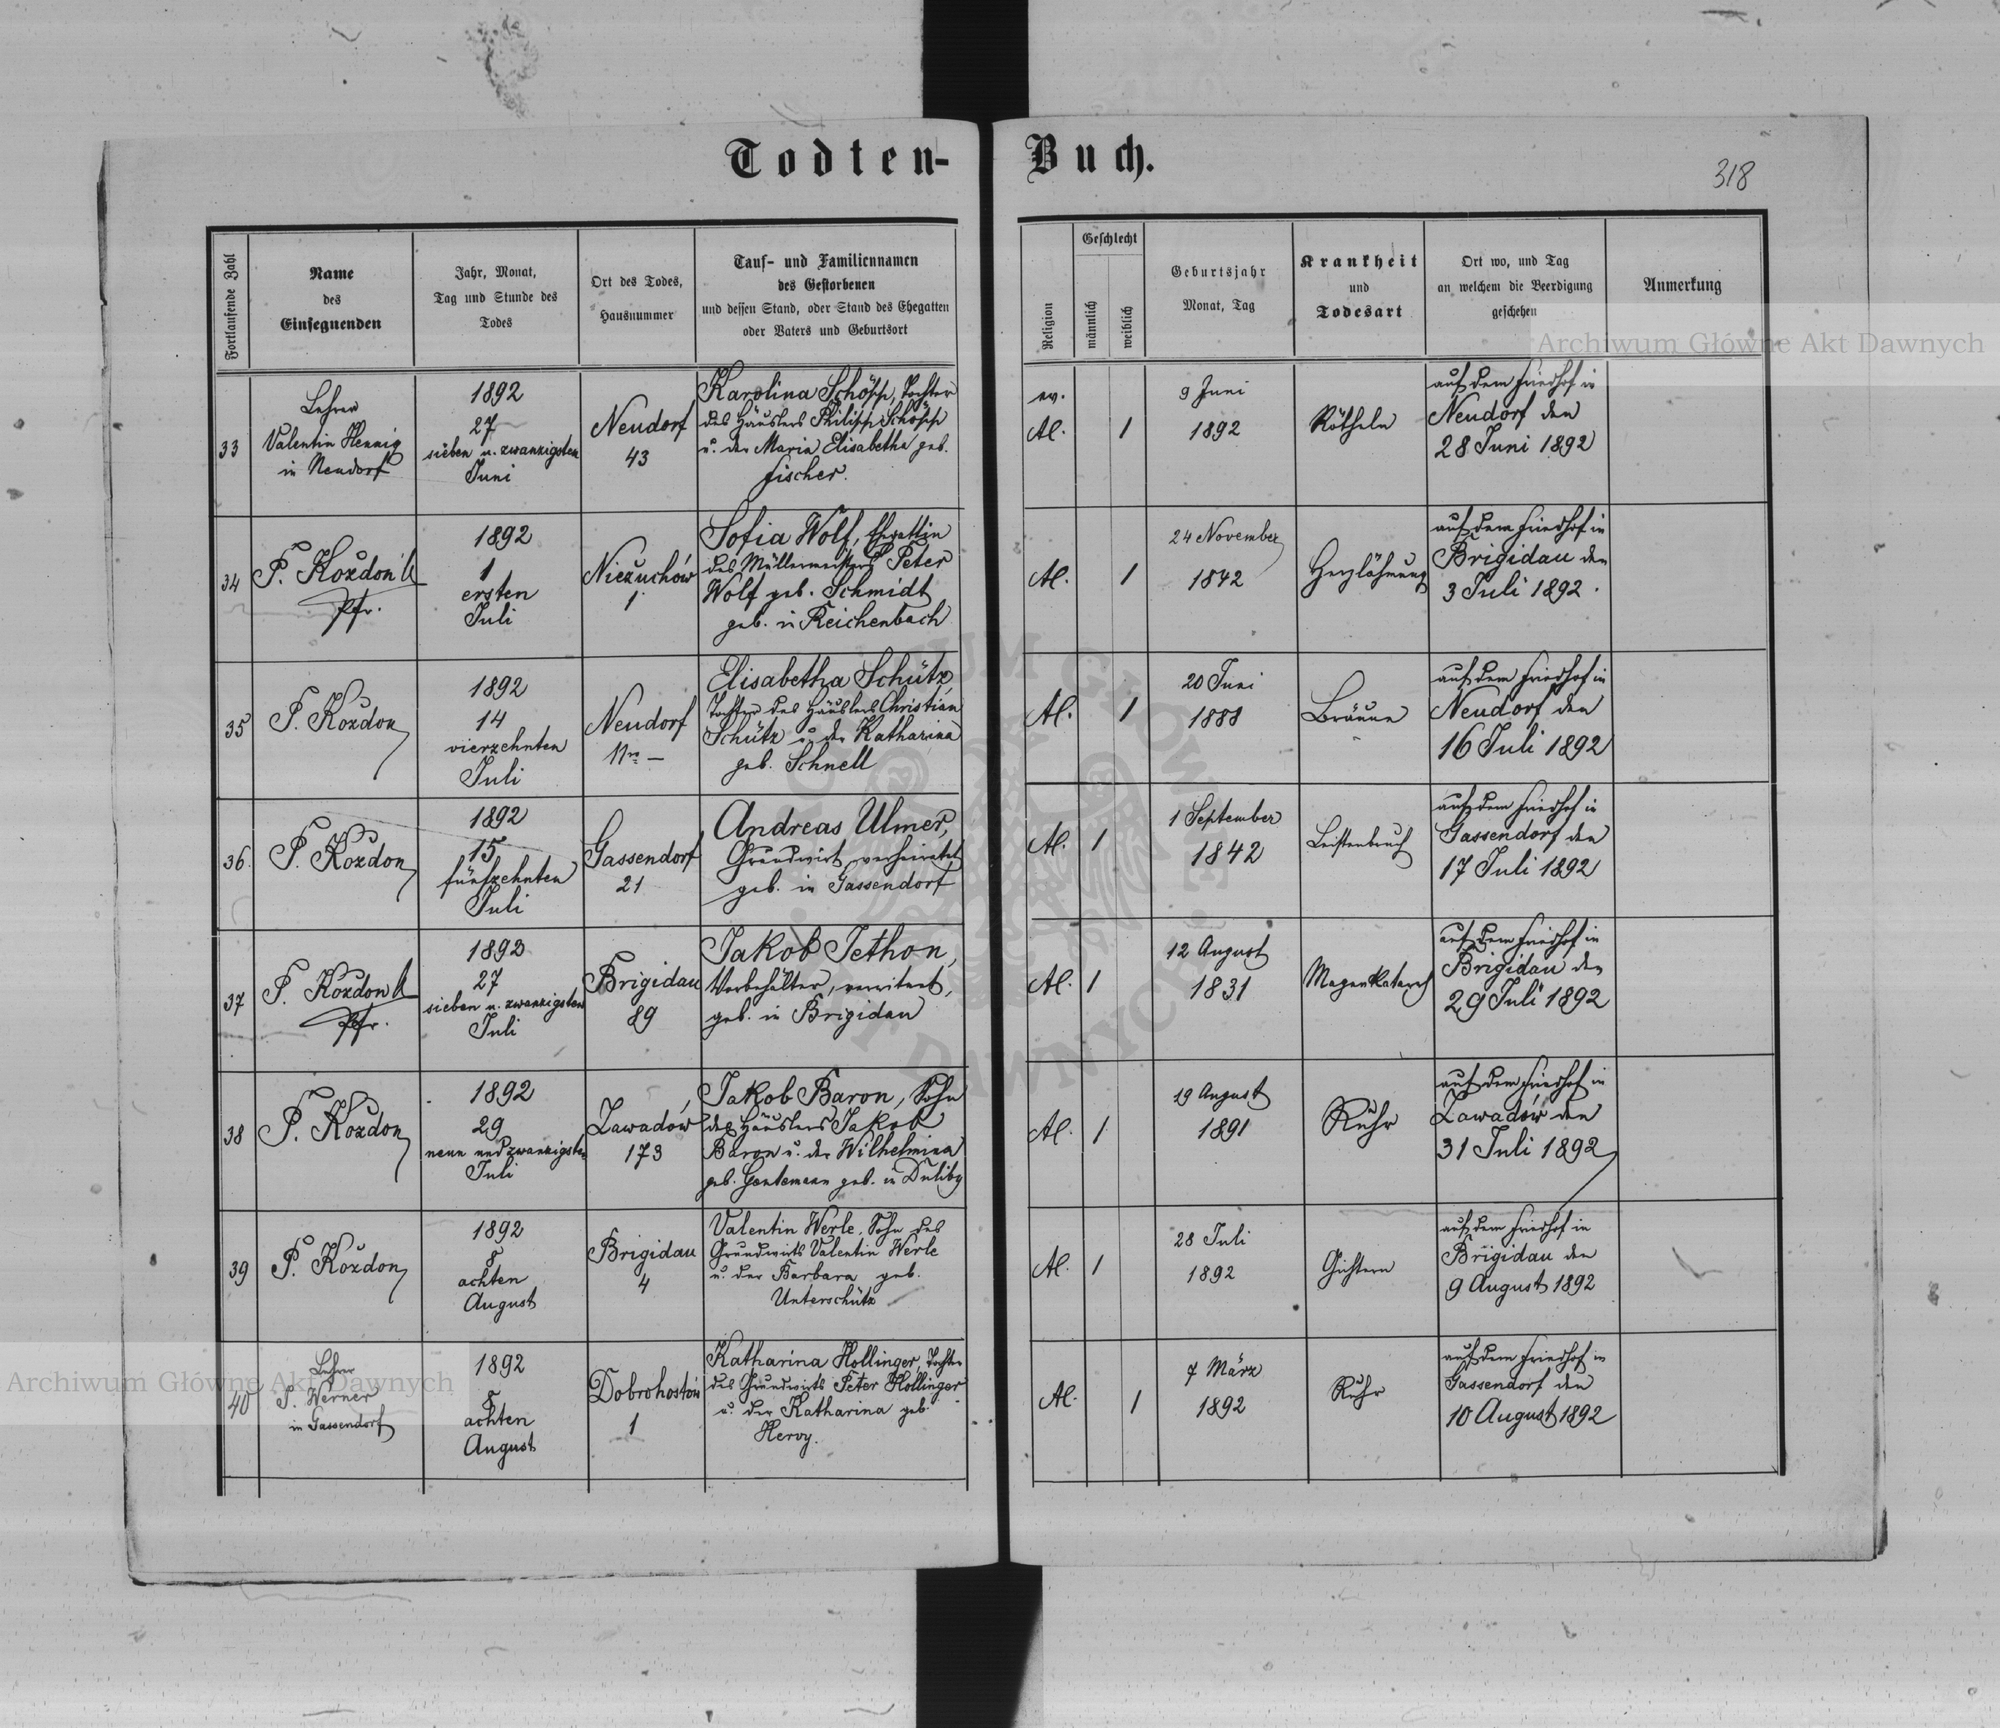 Todten-Buch.
318
Fortlaufende Zahl
Name
des
Einsegnenden
Jahr, Monat,
Tag und Stunde des
Todes
Ort des Todes,
Hausnummer
Tauf- und Familiennamen
des Gestorbenen
und dessen Stand, oder Stand des Ehegatten
oder Vaters und Geburtsort
Religion
Geschlecht
männlich
weiblich
Geburtsjahr
Monat, Tag
Krankheit
und
Todesart
Ort wo, und Tag
an welchem die Beerdigung
geschehen
Anmerkung
33
Lehrer
Valentin Hennig
in Neudorf
1892
27
sieben u. zwanzigsten
Juni
Neudorf
43
Karolina Schöpp, Tochter
des Häuslers Philipp Schöpp
u. der Maria Elisabetha geb.
Fischer.
ev.
Al.
1
9 Juni
1892
Rötheln
auf dem Friedhof in
Neudorf den
28 Juni 1892
34
P. Kozdon
Pfr.
1892
1
ersten
Juli
Niezuchów
1
Sofia Wolf, Ehegattin
des Müllermeisters Peter
Wolf geb. Schmidt
geb. in Reichenbach
Al.
1
24 November
1842
Herzlähmung
auf dem Friedhof in
Brigidau den
3 Juli 1892.
35
P. Kozdon
1892
14
vierzehnten
Juli
Neudorf
Nro —
Elisabetha Schütz,
Tochter des Häuslers Christian
Schütz u. der Katharina
geb. Schnell
Al.
1
20 Juni
1888
Bräune
auf dem Friedhof in
Neudorf den
16 Juli 1892
36.
P. Kozdon
1892
15
fünfzehnten
Juli
Gassendorf
21
Andreas Ulmer,
Grundwirt, verheiratet
geb. in Gassendorf
Al.
1
1 September
1842
Leistenbruch
auf dem Friedhof in
Gassendorf den
17 Juli 1892
37
P. Kozdon
Pfr.
1892
27
sieben u. zwanzigsten
Juli
Brigidau
89
Jakob Jethon,
Vorbehälter, verwitwet,
geb. in Brigidau
Al.
1
12 August
1831
Magenkatarrh
auf dem Friedhof in
Brigidau den
29 Juli 1892
38
P. Kozdon
1892
29
neun und zwanzigsten
Juli
Zawadów
173
Jakob Baron, Sohn
des Häuslers Jakob
Baron u. der Wilhelmina
geb. Gentemann geb. in Duliby
Al.
1
19 August
1891
Ruhr
auf dem Friedhof in
Zawadów den
31 Juli 1892
39
P. Kozdon
1892
8
achten
August
Brigidau
4
Valentin Werle, Sohn des
Grundwirts Valentin Werle
u. der Barbara geb.
Unterschütz
Al.
1
28 Juli
1892
Gichtern
auf dem Friedhof in
Brigidau den
9 August 1892
40
Lehrer
P. Werner
in Gassendorf
1892
8
achten
August
Dobrohostów
1
Katharina Hollinger, Tochter
des Grundwirts Peter Hollinger
u. der Katharina geb.
Hervy.
Al.
1
7 März
1892
Ruhr
auf dem Friedhof in
Gassendorf den
10 August 1892
Archiwum Główne Akt Dawnych
Archiwum Główne Akt Dawnych